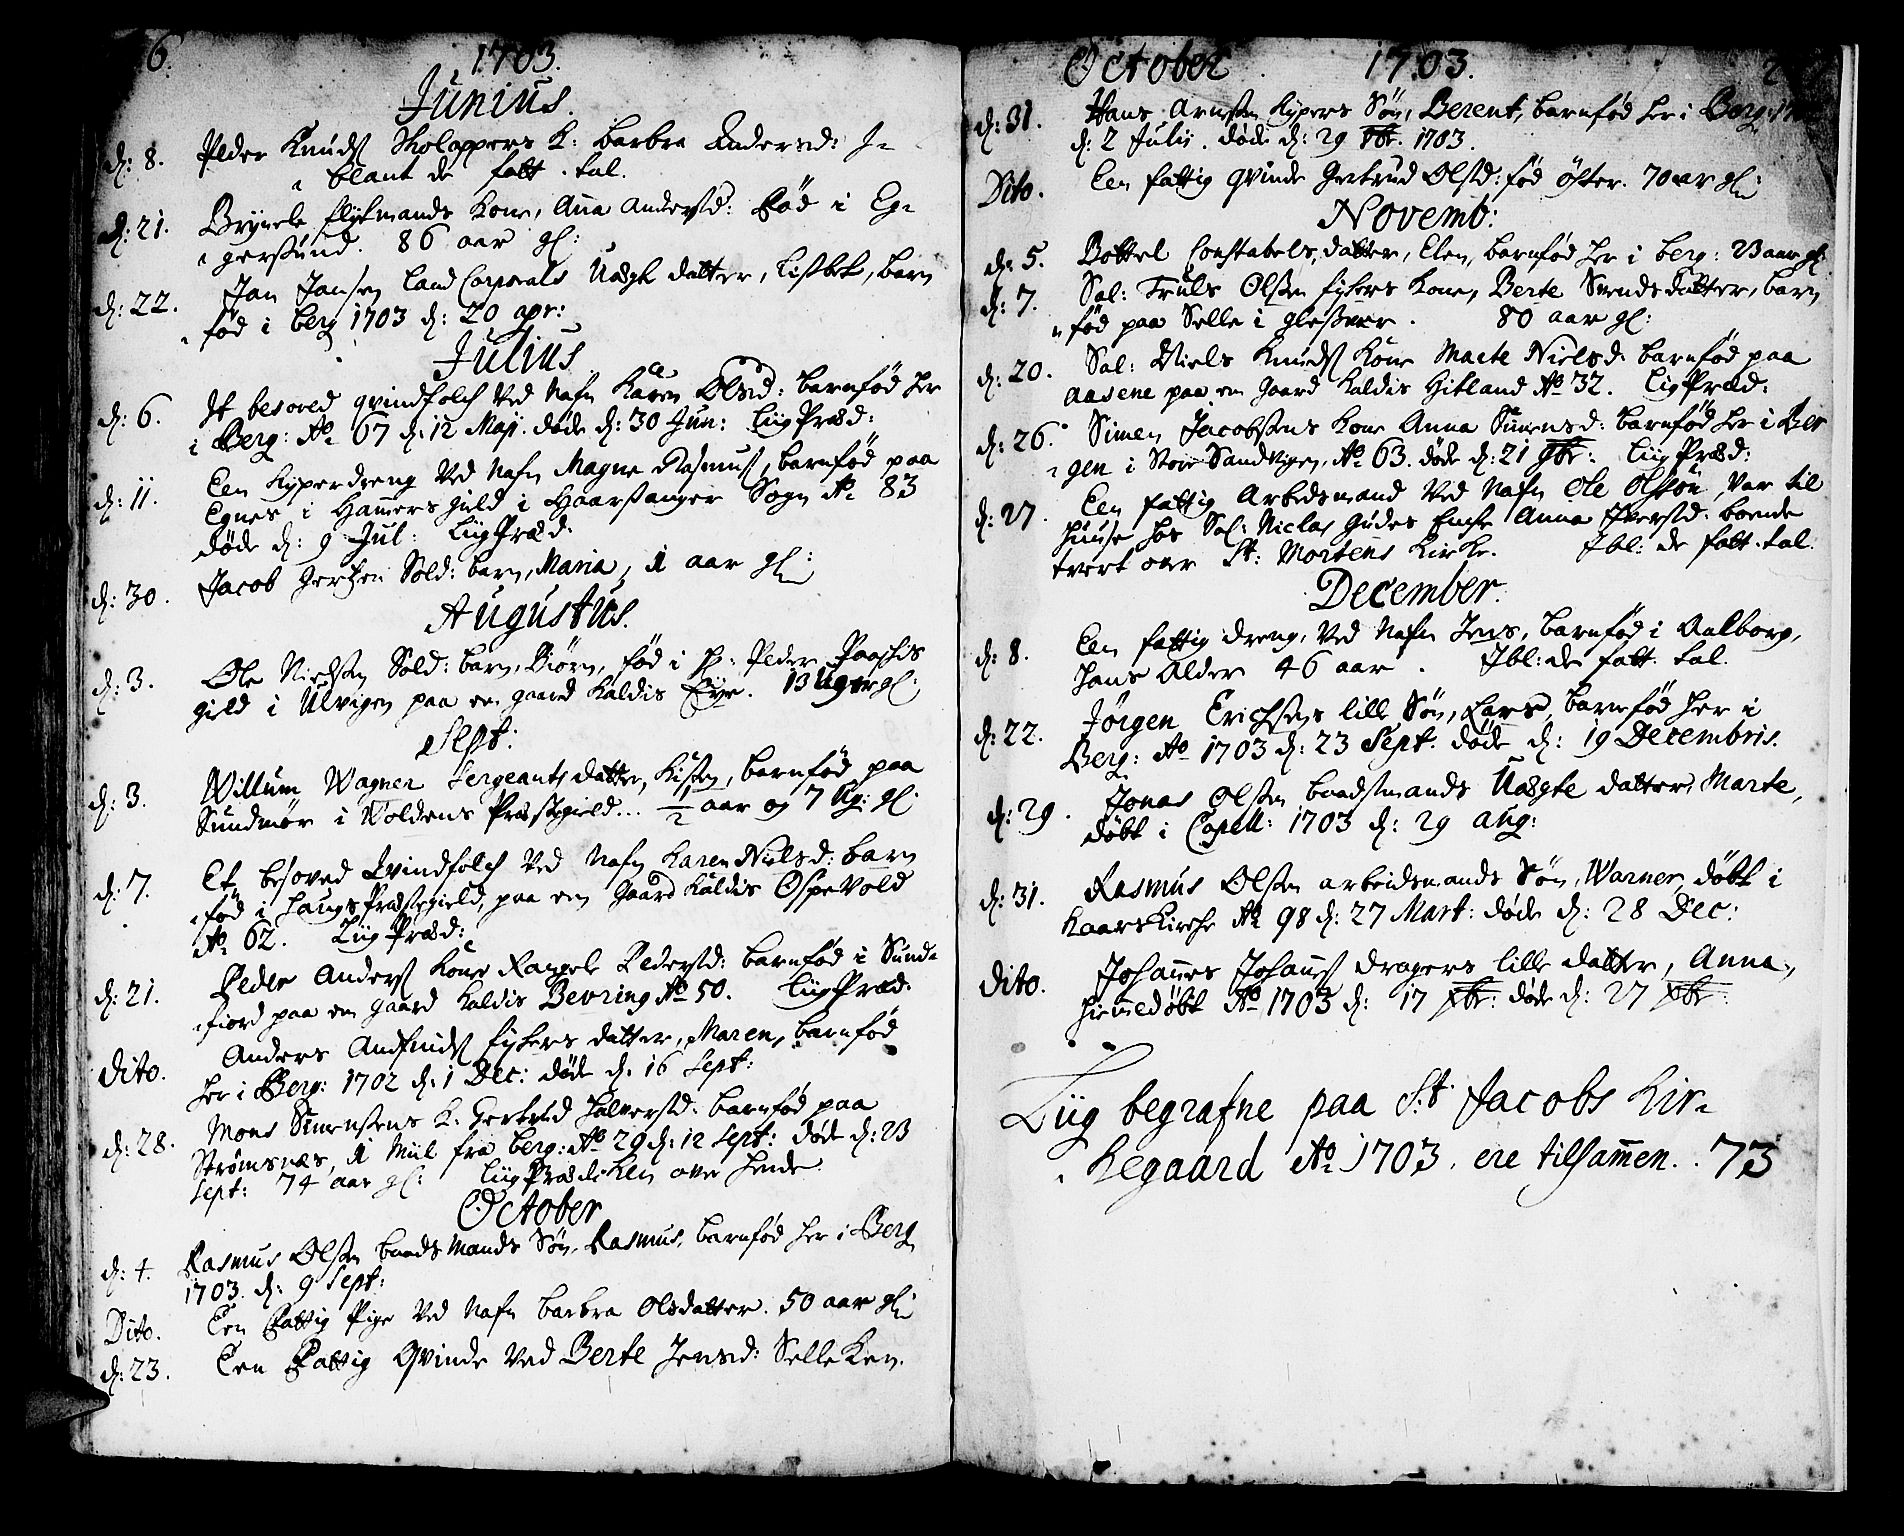 6.
1703.
Junius.
d: 8. Peder Knuds Skolappers K: barbra Andersd: I-
blant de fatt. tal.
d: 21. Brynele flykmands Kone, Anna Andersd: Fød i Eg-
gersund. 86 aar gl:
d: 22. Jan Jansen Land Corporals Uægte datter, Lisbet, barn
fød i berg 1703 d: 20 apr:
Julius
d: 6. It besoved qvindfolch ved Nafn Karen Olsd: barnfød her
i Berg: Ao 67 d: 12 Maji. døde d: 30 Jun: Liig Præd:
d: 11. Een Kyperdreng ved Nafn Magne Rasmus, barnfød paa
Egnes i Hamers gield i Haarsanger Sogn Ao 83
døde d: 9 Jul: Liig Præd:
d: 30. Jacob Gertzen Sold: barn, Maria, 1 aar gl:
Augustus.
d: 3. Ole Nielsen Sold: barn, Biørn, fød i H: Peder Paaschis
gield i Ulvigen paa en gaard kaldis Eye. 13 Uger gl:
Sept:
d: 3. Willum Wagner Sergeants datter, Kisten, barnfød paa
Sundmør i Woldens Præstegield... 1/2 aar og 7 Ug: gl:
d: 7. Et besoved Qvindfolch ved Nafn Karen Nielsd: barn
fød i Haugs Præstegield, paa een Gaard kaldis Ospevold
Ao 62. Liig Præd:
d: 21. Peder Anders Kone Rangele Pedersd: barnfød i Sund-
fiord paa en gaard kaldis Bevring Ao 50. Liig Præd.
Dito. Anders Andfinds fiskers datter, Maren, barnfød
her i Berg: 1702 d: 1 Dec: døde d: 16 Sept:
d: 28. Mons Simensens K: Gertrud Halversd: barnfød paa
Strømsnæs, 1 Miil fra berg: Ao 29 d: 12 Sept: døde d: 23
Sept: 74 aar gl: Liig Prædiken over hende.
October
d: 4. Rasmus Olsen baads Mands Søn, Rasmus, barnfød her i Berg
1703. d: 9 Sept:
Dito. Een fattig Pige ved Nafn barbra Olsdatter. 50 aar gl:
d: 23. Een fattig Qvinde ved Berte Jensd: Selleken.
October 1703.
d: 31. Hans Arnsen Kypers Søn, Berent, barnfød her i Berg:
d: 2 Julii. døde d: 29 8br. 1703.
Dito. Een fattig qvinde Gertrud Olsd: fød öster. 70 aar gl:
Novemb:
d: 5. Bottel Constabels, datter, Elen, barnfød her i berg: 23 aar gl.
d: 7. Sal: Truls Olsen fiskers Kone, Berte Svends datter, barn
fød paa Selle i Glesvær. 80 aar gl:
d: 20. Sal: Niels Knuds Kone Marte Nielsd: barnfød paa
Aasene paa en gaard kaldis Hitland Ao 32. Liig Præd:
d: 26. Simen Jacobsens Kone Anna Simensd: barnfød her i Ber
gen i Store Sandvigen, Ao 63. døde d: 21 9br: Liig Præd:
d: 27. Een fattig Arbedsmand ved Nafn Ole Olsøn, var til
Huuse hos Sal: Niclas Gudes Enche Anna Iversd: boende
tvert over St: Mortens Kirke. Ibl: de fatt. tal.
December.
d: 8. Een fattig dreng, ved Nafn Jens, barnfød i Aalborg,
hans Alder 46 aar. Ibl: de fatt. tal.
d: 22. Jörgen Erichsens lille Søn, Lars, barnfød her i
Berg: Ao 1703 d: 23 Sept. døde d: 19 Decembris.
d: 29. Jonas Olsen baadsmands Uægte datter, Marte,
døbt i Capell: 1703 d: 29 aug:
d: 31. Rasmus Olsen arbeidsmands Søn, Warner, døbt i
Kaars Kirche Ao 98 d: 27 Mart: døde d: 28 Dec:
dito. Johannes Johannes dragers lille datter, Anna,
hiemedøbt Ao 1703 d: 17 xbr: døde d: 27 xbr:
Liig begrafne paa St. Jacobs Kir-
kegaard Ao 1703. ere tilsammen.. 73